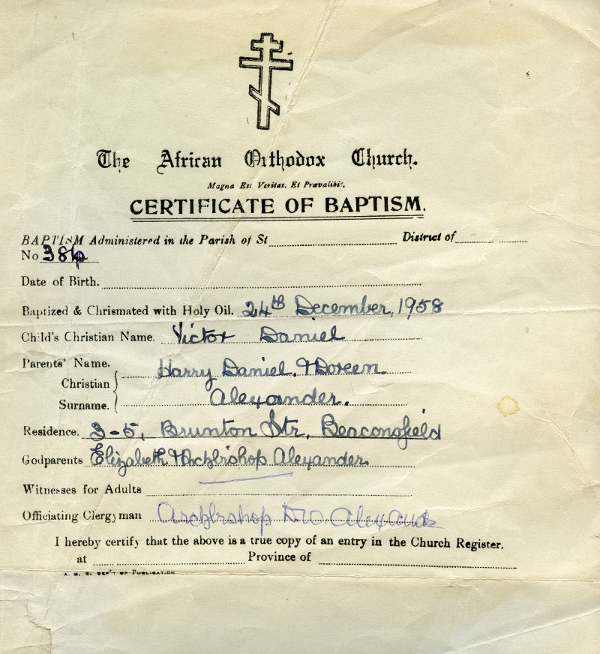 The African Orthodox Church.
Magna Est Veritas. Et Prævalibit.
CERTIFICATE OF BAPTISM.
BAPTISM Administered in the Parish of St District of
No
Date of Birth.
Baptized & Chrismated with Holy Oil. 24th December, 1958
Child's Christian Name. Victor Daniel
Parents' Name. Harry Daniel & Doreen
Christian
Surname. Alexander.
Residence. 3-5, Brunton Str, Beaconsfield
Godparents Elizabeth & Archbishop Alexander
Witnesses for Adults
Officiating Clergyman Archbishop Alexander
I hereby certify that the above is a true copy of an entry in the Church Register.
at Province of
DEP'T OF PUBLICATION